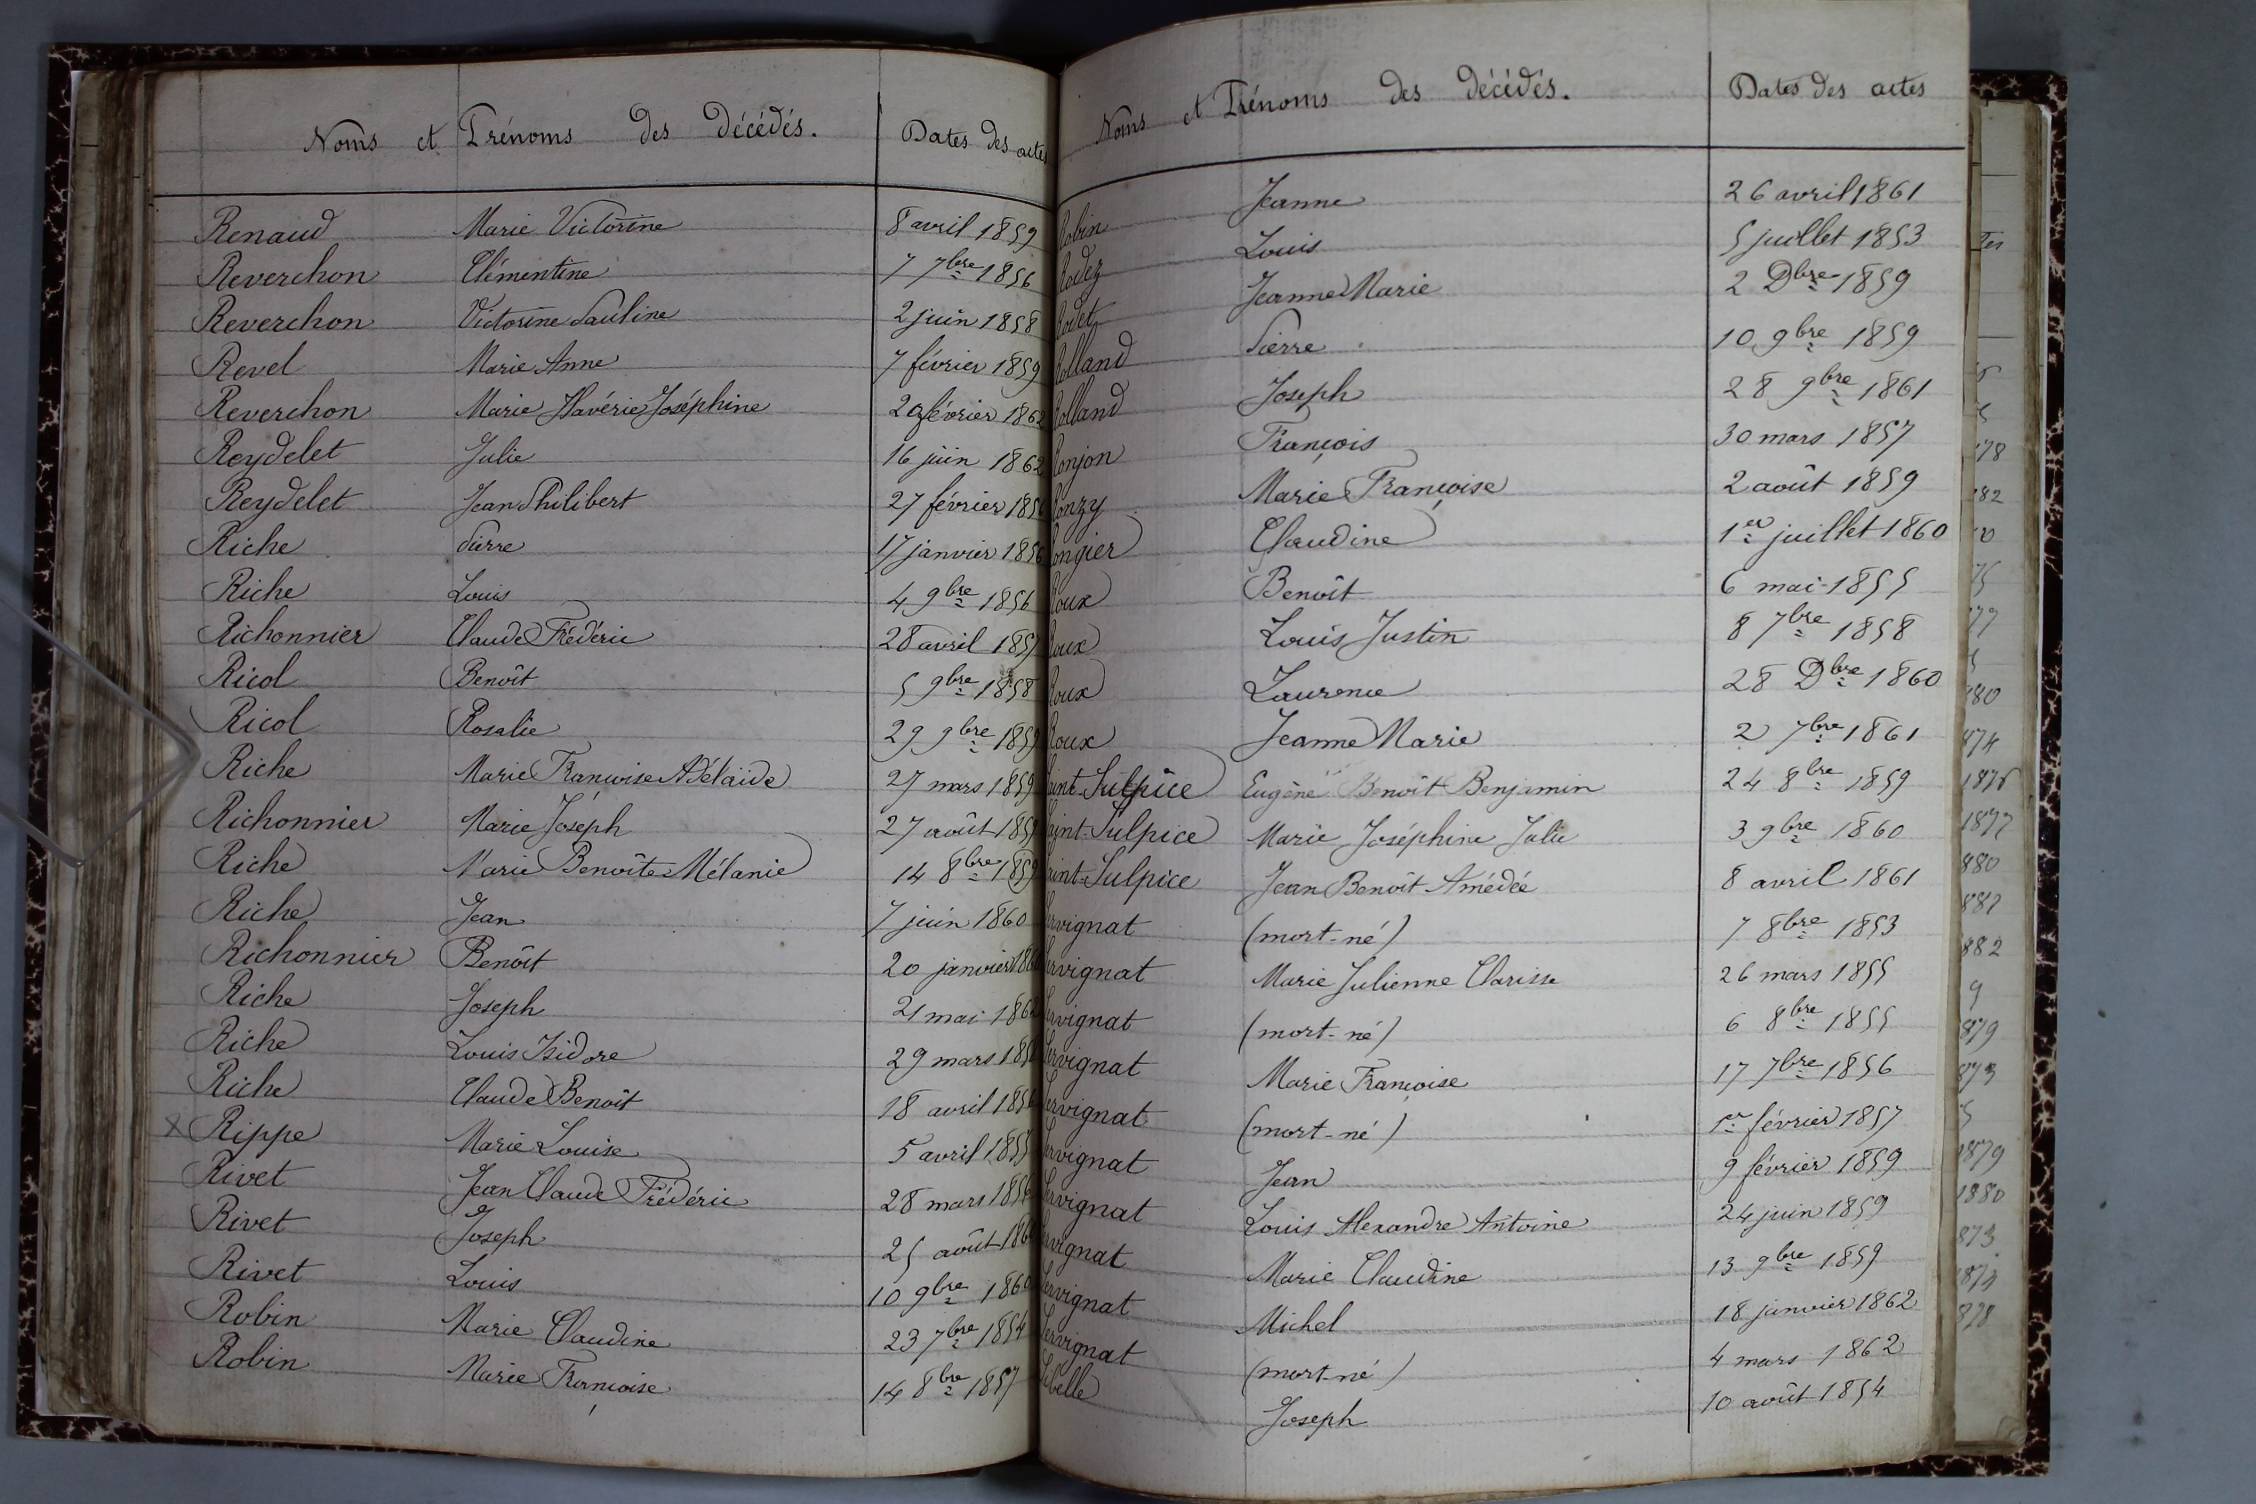 Noms et Prénoms des décédés. Dates des actes
Renaud Marie Victorine 8 avril 1859
Reverchon Clémentine 7 7bre 1856
Reverchon Victorine Pauline 2 juin 1858
Revel Marie Anne 7 février 1859
Reverchon Marie Xavérie Joséphine février 1862
Reydelet Julie 16 juin 1862
Reydelet Jean Philibert 27 février
Riche Pierre 17 janvier 1856
Riche Louis 4 9bre 1856
Richonnier Claude Frédéric 28 avril 1857
Ricol Benoît 5 9bre 1858
Ricol Rosalie 29 9bre 1859
Riche Marie Françoise Adélaïde 27 mars 1859
Richonnier Marie Joseph 27 août 1859
Riche Marie Benoîte Mélanie 14 8bre 1859
Riche Jean 7 juin 1860
Richonnier Benoît 20 janvier
Riche Joseph 21 mai 1862
Riche Louis Isidore 29 mars
Riche Claude Benoît 18 avril
x Rippe Marie Louise 5 avril 1855
Rivet Jean Claude Frédéric 28 mars
Rivet Joseph 25 août
Rivet Louis 10 9bre 1860
Robin Marie Claudine 23 7bre 1854
Robin Marie Françoise 14 8bre 1857
Noms et Prénoms des décédés. Dates des actes
Robin Jeanne 26 avril 1861
Rodez Louis 5 juillet 1853
Rodet Jeanne Marie 2 Dbre 1859
Rolland Pierre 10 9bre 1859
Rolland Joseph 28 9bre 1861
Ronjon François 30 mars 1857
Ronzy Marie Françoise 2 août 1859
Rongier Claudine 1er juillet 1860
Roux Benoît 6 mai 1855
Roux Louis Justin 8 7bre 1858
Roux Laurence 28 Dbre 1860
Roux Jeanne Marie 2 7bre 1861
Saint-Sulpice Eugène Benoît Benjamin 24 8bre 1859
Saint-Sulpice Marie Joséphine Julie 3 9bre 1860
Saint-Sulpice Jean Benoît Amédée 8 avril 1861
Servignat (mort-né) 7 8bre 1853
Servignat Marie Julienne Clarisse 26 mars 1855
Servignat (mort-né) 6 8bre 1855
Servignat Marie Françoise 17 7bre 1856
Servignat (mort-né) 1er février 1857
Servignat Jean 9 février 1859
Servignat Louis Alexandre Antoine 24 juin 1859
Servignat Marie Claudine 13 9bre 1859
Servignat Michel 18 janvier 1862
Servignat (mort-né) 4 mars 1862
Sibelle Joseph 10 août 1854